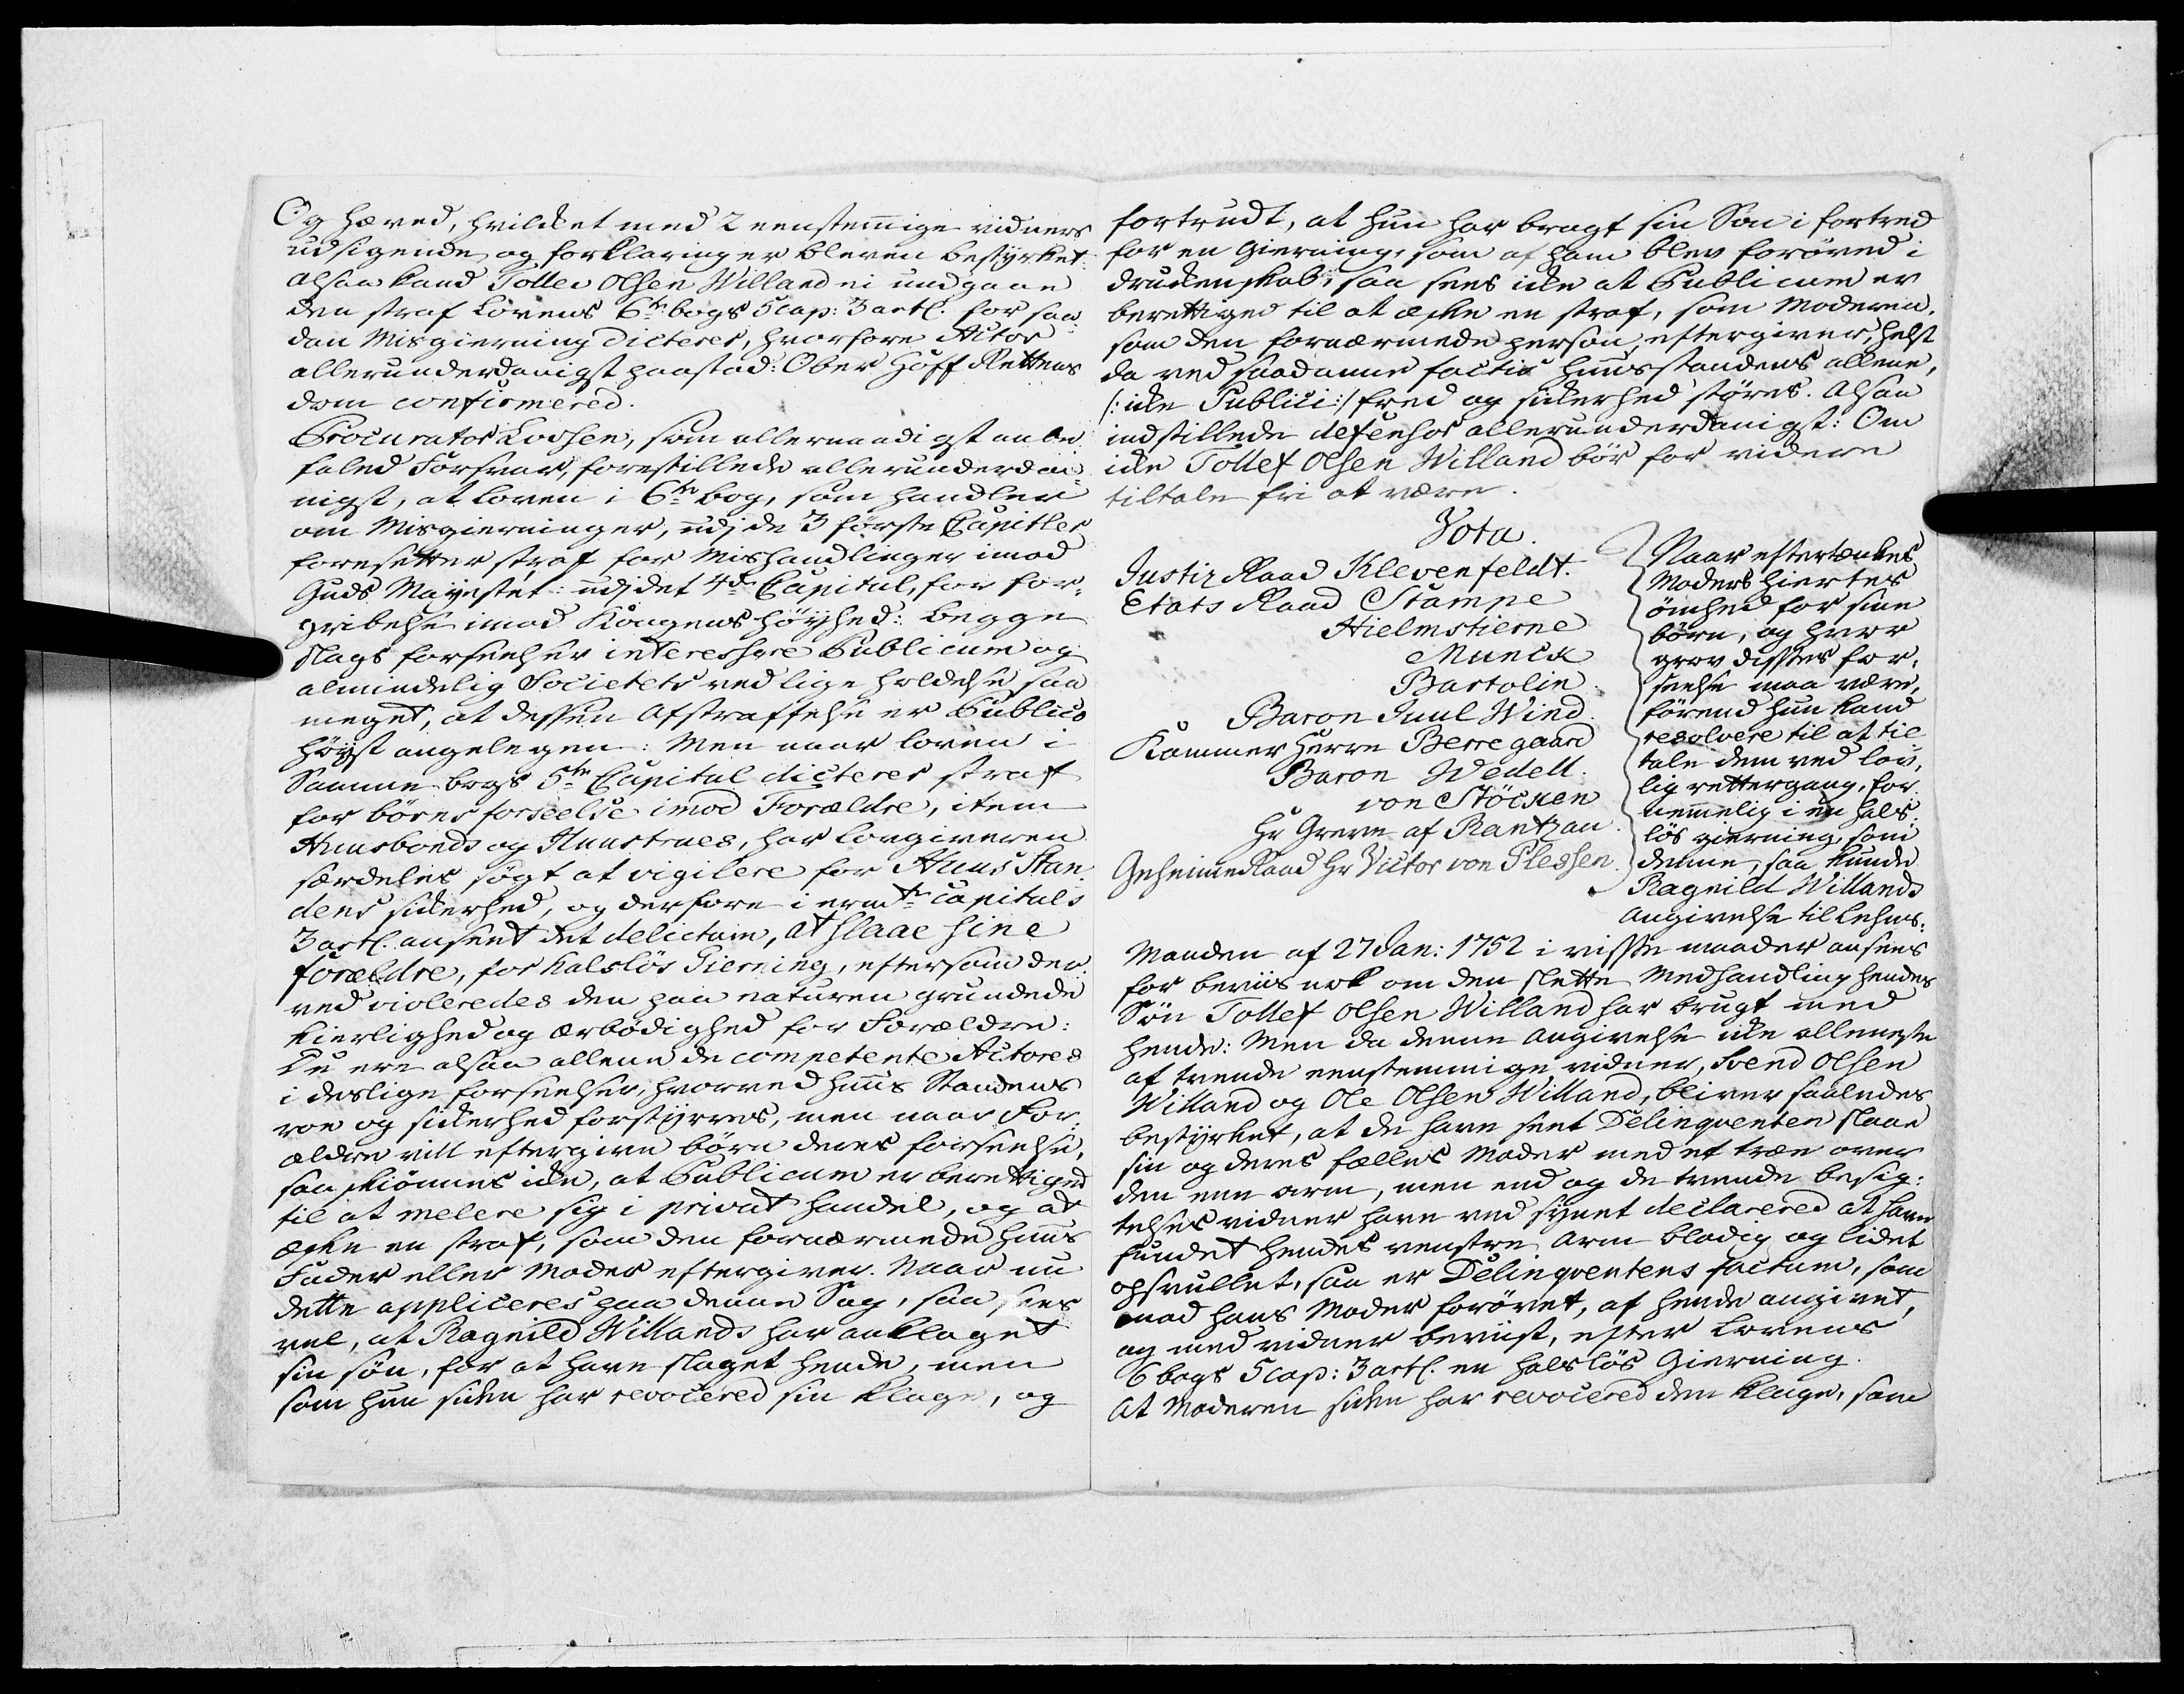 Og hæved, hvilcket med 2 eenstemige vidners
udsigende og forklaringer bleven bestyrket.
Altsaa kand Tollev Olsen Willand ei undgaae
den straf Lovens 6te bogs 5 cap: 3 artl. for saa
dan Misgierning dicteres, hvorfore Actor
allerunderdanigst paastod: Ober Hoff Rettens
dom confirmered.
Procurator Lossen, som allernaadigst anbe
faled Forsvar, forestillede allerunderda
nigst, at loven i 6te bog, som handler
om Misgierninger, udj de 3 første Capitler
foresetter straf for Mishandlinger imod
Guds Mayestet: udj det 4de Capitul, for for¬
gribelse imod Kongens høyhed: begge
slags forseelser interessere Publicum og
almindelig Societets vedlige holdelse saa
meget, at dessen Afstraffelse er Publico
høyst angelegen: Men naar loven i
Samme bogs 5te Capitul dicterer straf
for børns forseelse imod Forældre, item
Huusbonds og Huustrues, har lovgiveren
særdeles søgt at vigilere for Huus Stan¬
dens sikerhed, og derfore i ermte Capituls
3 artl. anseet det delictum, at slaae sine
forældre, for halsløs Gierning, eftersom der
ved violeredes den paa naturen grundede
kierlighed og ærbødighed for Forældre:
De ere altsaa allene de competente Actores
i deslige forseelser, hvorved huus Standens
roe og sikerhed forstyrres, men naar For¬
ældre vill eftergive børn deres forseelse,
saa skiønnes ike, at Publicum er berettiged
til at melere sig i privat handel, og at
æske en straf, som den fornærmede huus
Fader eller Moder eftergiver. Naar nu
dette appliceres paa denne Sag, saa sees
vel, at Ragnild Willands har anklaget
sin søn, for at have slaget hende, men
som hun siden har revocered sin klage, og
fortrudt, at hun har bragt sin Søn i fortred
for en Gierning, som af ham blev forøved i
druckenskab: saa sees ike at Publicum er
berettiged til at æske en straf, som Moderen,
som den fornærmede person, eftergiver, helst
da ved saadanne factis huusstandens allene,
/: ike Publici:/ fred og sikerhed støres. Altsaa
indstillede defensor allerunderdanigst: Om
ike Tollef Olsen Willand bør for videre
tiltale fri at være.
Vota.
Justiz Raad Klevenfeldt.
Etats Raad Stampe
Hielmstierne
Munck
Bartolin.
Baron Juul Wind
Kammer Herre Berregaard
Baron Wedell.
von Stöcken
Hr Greve af Rantzau.
Geheime Raad Hr Victor von Plessen.
Naar eftertænkes
Moders hiertes
ømhed for sine
børn, og hvor
grov disses for¬
seelse maa være,
førend hun kand
resolvere til at til
tale dem ved lov¬
lig rettergang, for
nemmelig i en hals
løs gierning, som
denne, saa kunde
Ragnild Willands
Angivelse til Lehns¬
Manden af 27 Jan: 1752 i visse maader ansees
for beviis nok om den slette Medhandling hendes
Søn Tollef Olsen Willand har brugt med
hende: Men da denne Angivelse ike alleneste
af tvende eenstemmige vidner, Svend Olsen
Willand og Ole Olsen Willand, bliver saaledes
bestyrket, at de have seet Delinqventen slaae
sin og deres fælles Moder med et træe over
den ene arm, men end og de tvende besig¬
telses vidner have ved synet declarered at have
fundet hendes venstre Arm blodig og lidet
opsvullet, saa er Delinqventens factum, som
mod hans Moder forøvet, af hende angivet,
og med vidner beviist, efter Lovens
6 bogs 5 cap: 3 artl. en halsløs Gierning.
At Moderen siden har revocered den klage, som